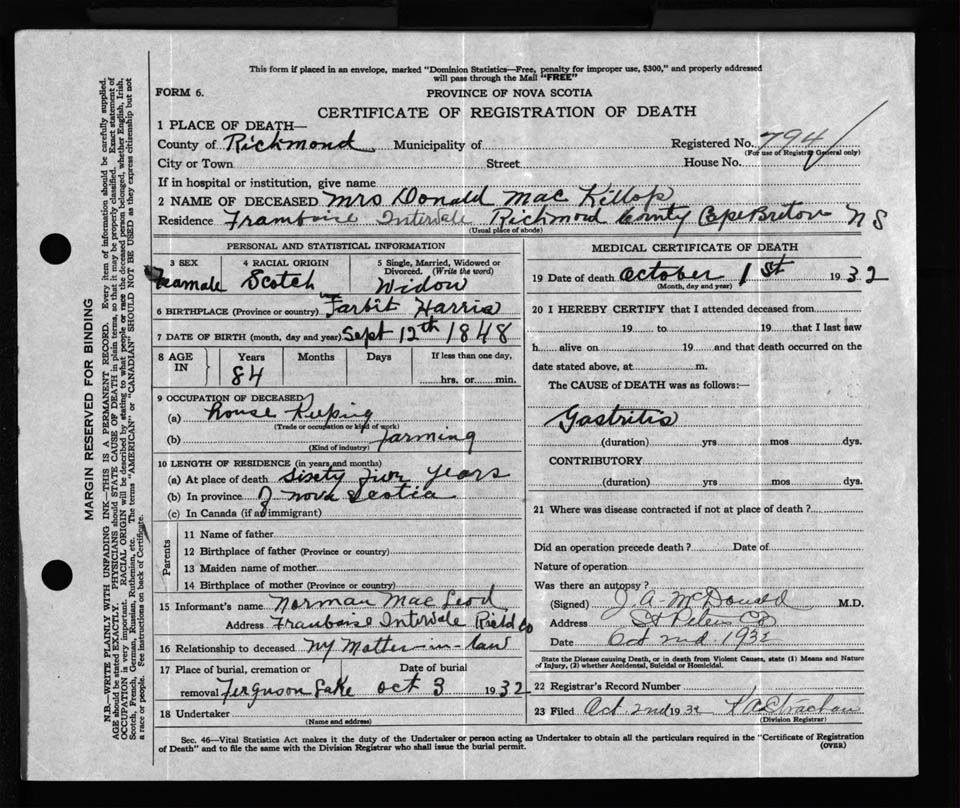 This form if placed in an envelope, marked "Dominion Statistics—Free, penalty for improper use, $300," and properly addressed
will pass through the Mail "FREE"
FORM 6. PROVINCE OF NOVA SCOTIA
CERTIFICATE OF REGISTRATION OF DEATH
1 PLACE OF DEATH—
County of Richmond Municipality of Registered No. 794
(For use of Registrar General only)
City or Town Street House No.
If in hospital or institution, give name
2 NAME OF DECEASED Mrs Donald Mac Killop
Residence Framboise Intervale Richmond County Cape Breton N S
(Usual place of abode)
PERSONAL AND STATISTICAL INFORMATION
3 SEX 4 RACIAL ORIGIN 5 Single, Married, Widowed or
Divorced. (Write the word)
Feamale Scotch Widow
6 BIRTHPLACE (Province or country) Tarbit Harris
7 DATE OF BIRTH (month, day and year) Sept 12th 1848
8 AGE IN Years Months Days If less than one day,
84 hrs. or min.
9 OCCUPATION OF DECEASED
(a) House Keeping
(Trade or occupation or kind of work)
(b) farming
(Kind of industry)
10 LENGTH OF RESIDENCE (in years and months)
(a) At place of death Sixty years
(b) In province Nova Scotia
(c) In Canada (if an immigrant)
Parents
11 Name of father
12 Birthplace of father (Province or country)
13 Maiden name of mother
14 Birthplace of mother (Province or country)
15 Informant's name Norman Mac Leod
Address Framboise Intervale Co
16 Relationship to deceased My Mother-in-law
17 Place of burial, cremation or Date of burial
removal Ferguson Lake Oct 3 1932
18 Undertaker
(Name and address)
MEDICAL CERTIFICATE OF DEATH
19 Date of death October 1st 1932
(Month, day and year)
20 I HEREBY CERTIFY that I attended deceased from
19 to 19 that I last saw
h alive on 19 and that death occurred on the
date stated above, at m.
The CAUSE of DEATH was as follows:—
Gastritis
(duration) yrs mos dys.
CONTRIBUTORY
(duration) yrs mos dys.
21 Where was disease contracted if not at place of death?
Did an operation precede death? Date of
Nature of operation
Was there an autopsy?
(Signed) J A McDonald M.D.
Address St Peters CB
Date Oct 2nd 1932
State the Disease causing Death, or in death from Violent Causes, state (1) Means and Nature
of Injury, (2) whether Accidental, Suicidal or Homicidal.
22 Registrar's Record Number
23 Filed Oct 2nd 1932 Strachan
(Division Registrar)
Sec. 46—Vital Statistics Act makes it the duty of the Undertaker or person acting as Undertaker to obtain all the particulars required in the "Certificate of Registration
of Death" and to file the same with the Division Registrar who shall issue the burial permit. (OVER)
MARGIN RESERVED FOR BINDING
N.B.—WRITE PLAINLY WITH UNFADING INK—THIS IS A PERMANENT RECORD. Every item of information should be carefully supplied.
AGE should be stated EXACTLY. PHYSICIANS should STATE CAUSE OF DEATH in plain terms, so that it may be properly classified. Exact statement of
OCCUPATION is very important. RACIAL ORIGIN will be described by stating to what people or race the deceased person belonged, whether English, Irish,
Scotch, French, German, Russian, Ruthenian, etc. The terms "AMERICAN" or "CANADIAN" SHOULD NOT BE USED as they express citizenship but not
a race or people. See instructions on back of Certificate.